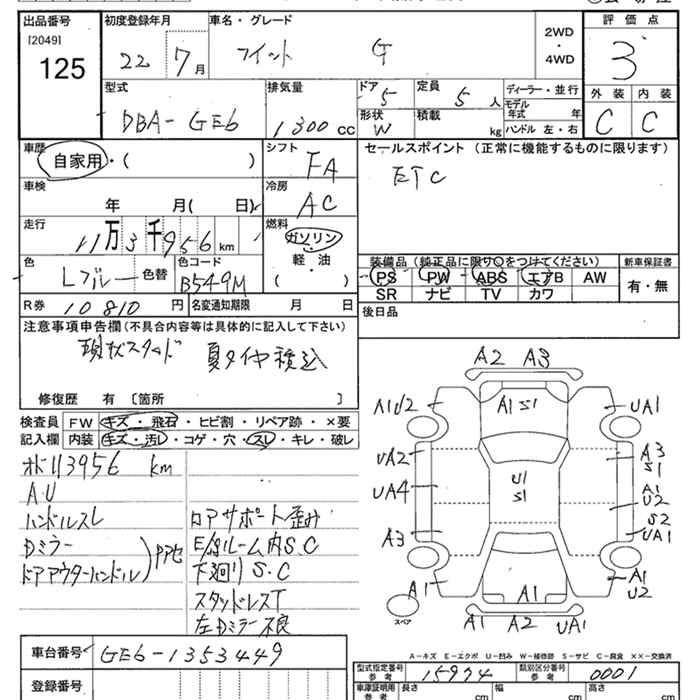 出品番号 初度登録年月 車名・グレード 2WD・4WD 評価点
[2049]
125 22 7月 フィット G 3
型式 排気量 ドア 5 定員 5人 ディーラー・並行 外装 内装
モデル年式 年
DBA-GE6 1300cc 形状 W 積載 kg ハンドル 左・右 C C
車歴 シフト セールスポイント (正常に機能するものに限ります)
自家用・( ) FA ETC
車検 冷房
年 月( 日) AC
走行 燃料
11万3千956km ガソリン
軽・油
( )
装備品(純正品に限り○をつけてください) 新車保証書
色 Lブルー 色替 色コード B549M
PS PW ABS エアB AW 有・無
SR ナビ TV カワ
R券 10810円 名変通知期限 月 日
後日品
注意事項申告欄(不具合内容等は具体的に記入して下さい)
現状スタッド 夏タイヤ積込
修復歴 有〔箇所 〕
検査員 FW キズ・飛石・ヒビ割・リペア跡・×要
記入欄 内装 キズ・汚レ・コゲ・穴・スレ・キレ・破レ
オド113956km
AU
ハンドルスレ ロアサポート歪み
Dミラー E/gルーム内S.C
ドアアウターハンドル 下廻りS.C
スタッドレスT
左Dミラー不良
A2 A3
A1U2 A1 S1 UA1
UA2 A3
S1
U1
S1
UA4 A1
U2
S2
A3 UA1
A1 A1 A1
U2
スペア A1 A2 UA1
車台番号 GE6-1353449
A-キズ E-エクボ U-凹み W-補修跡 S-サビ C-腐食 XX-交換済
登録番号
型式指定番号 参考 15974 類別区分番号 参考 0001
車庫証明用 参考 長さ cm 幅 cm 高さ cm